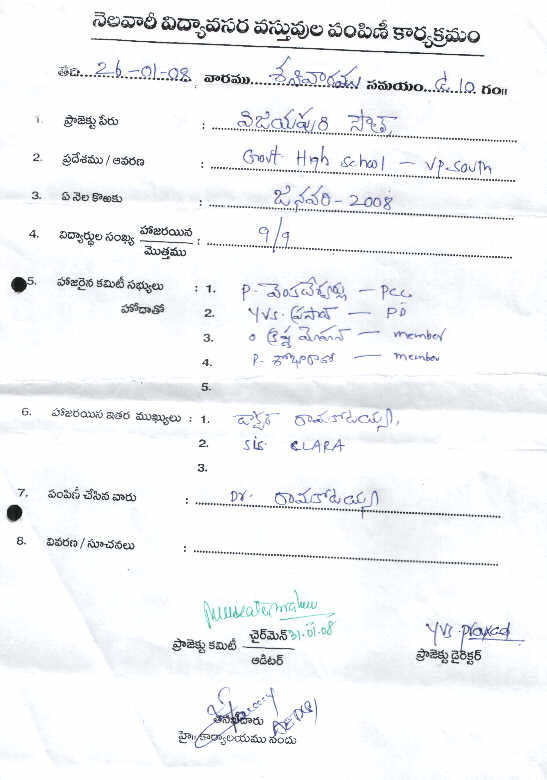 నెలవారీ విద్యావసర వస్తువుల పంపిణీ కార్యక్రమం
తేది. 26-01-08 వారము. శనివారము సమయం. గం॥
1. ప్రాజెక్టు పేరు : విజయపురి సౌత్
2. ప్రదేశము / ఆవరణ : Govt. High School - VP South
3. ఏ నెల కొఱకు : జనవరి - 2008
4. విద్యార్థుల సంఖ్య హాజరయిన / మొత్తము : 9/9
5. హాజరైన కమిటీ సభ్యులు : 1. P. వెంకటేశ్వర్లు - PCC
హోదాతో 2. Y.V.S. ప్రసాద్ - PD
3. కృష్ణ మోహన్ - member
4. P. శోభారాణి - member
5.
6. హాజరయిన ఇతర ముఖ్యులు : 1. డాక్టర్ రామకోటయ్య,
2. Sis. CLARA
3.
7. పంపిణీ చేసిన వారు : Dr. రామకోటయ్య
8. వివరణ / సూచనలు :
ప్రాజెక్టు కమిటీ చైర్‌మెన్ 31-01-08
ఆడిటర్
YVS. Prasad
ప్రాజెక్టు డైరెక్టర్
తనిఖీదారు
హై॥ కార్యాలయము నందు